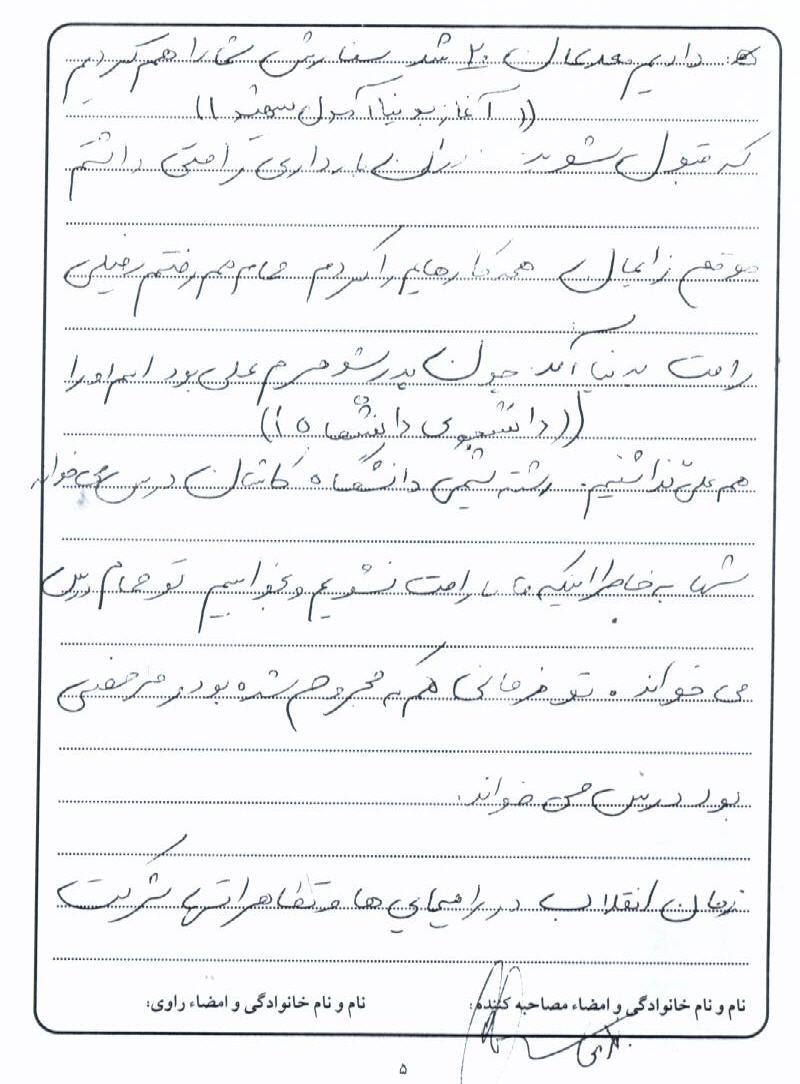 داریم معدلمان ۲۰ شد سفارش شما را هم کردیم
((آغاز به دنیا آمدن شهید))
که قبول شوید. زمان بارداری راحتی داشتم
موقع زایمان همه کارهایم را کردم حمام هم رفتم خیلی
راحت به دنیا آمد چون پدر شوهرم علی بود اسم او را
((دانشجوی دانشگاه))
هم علی گذاشتیم. رشته شیمی دانشگاه کاشان درس می‌خواند
شبها به خاطر اینکه ما ناراحت نشویم و بخوابیم تو حمام درس
می خواند. تو زمانی هم که مجروح شده بود و مرخصی
بود درس می خواند.
زمان انقلاب در راهپیمایی ها و تظاهراتها شرکت
نام و نام خانوادگی و امضاء مصاحبه کننده: نام و نام خانوادگی و امضاء راوی:
۵